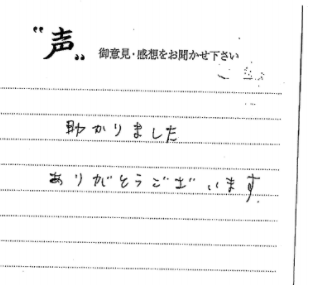 “声„ 御意見・感想をお聞かせ下さい
助かりました
ありがとうございます